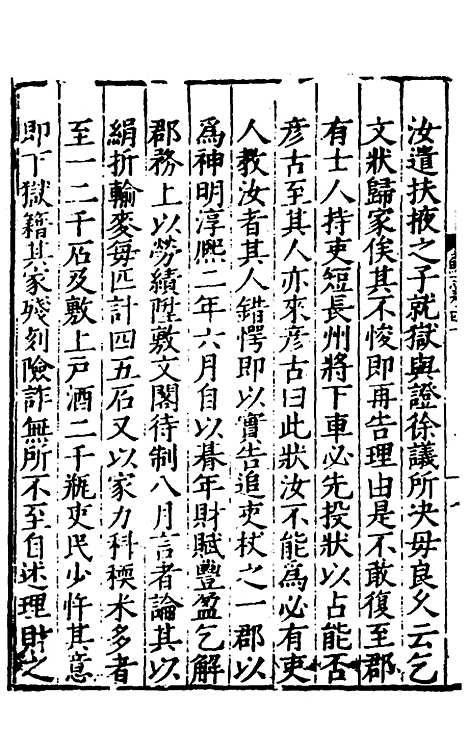 汝遣扶掖之子就獄與證徐議所決毋良久云乞
文狀歸家俟其不悛即再告理由是不敢復至郡
有士人持吏短長州將下車必先投狀以占能否
彦古至其人亦來彦古曰此狀汝不能爲必有吏
人教汝者其人錯愕即以實告追吏杖之一郡以
爲神明淳熙二年六月自以朞年財賦豐盈乞解
郡務上以勞績陞敷文閣待制八月言者論其以
絹折輸麥每匹計四五石又以家力科稬米多者
至一二千石及敷上戸酒二千瓶吏民少忤其意
即下獄籍其家殘刻險詐無所不至自述理財之